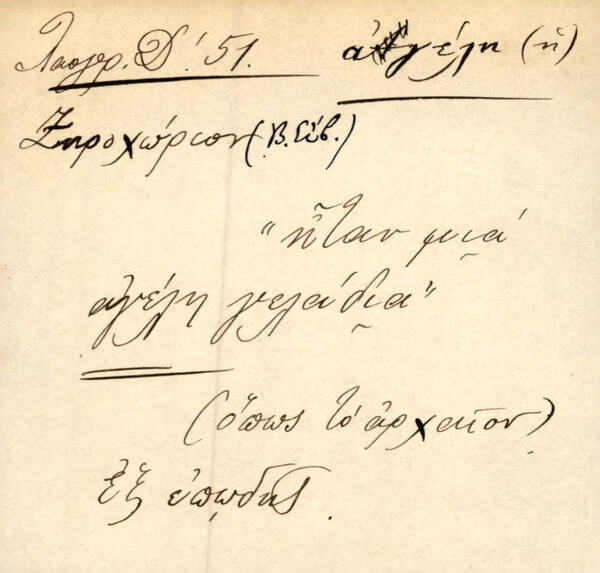 Λαογρ. Δ΄ 51. ἀγέλη (ἡ)
Ξηροχώριον (Β. Εὐβ.)
"ἦταν μιᾰ́
ἀγέλη γελάδια"
(ὅπως τὸ ἀρχαῖον)
ἐξ ἐπῳδῆς.